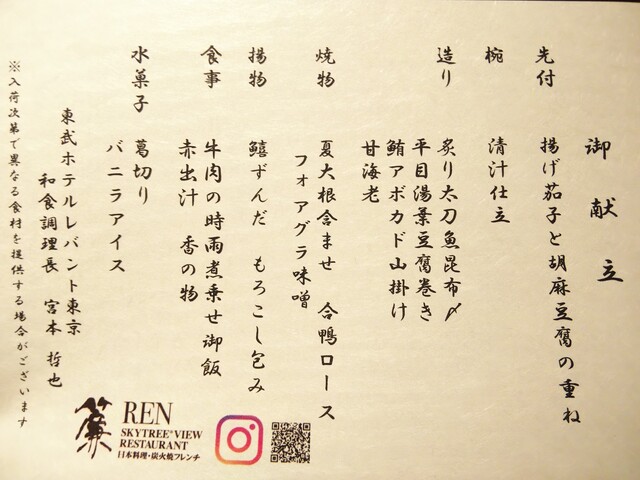 御献立
先付　揚げ茄子と胡麻豆腐の重ね
椀　清汁仕立
造り　炙り太刀魚昆布〆
平目湯葉豆腐巻き
鮪アボカド山掛け
甘海老
焼物　夏大根含ませ　合鴨ロース
フォアグラ味噌
揚物　鱚ずんだ　もろこし包み
食事　牛肉の時雨煮乗せ御飯
赤出汁　香の物
水菓子　葛切り
バニラアイス
東武ホテルレバント東京
和食調理長　宮本 哲也
※入荷次第で異なる食材を提供する場合がございます
簾
REN
SKYTREE® VIEW
RESTAURANT
日本料理・炭火焼フレンチ